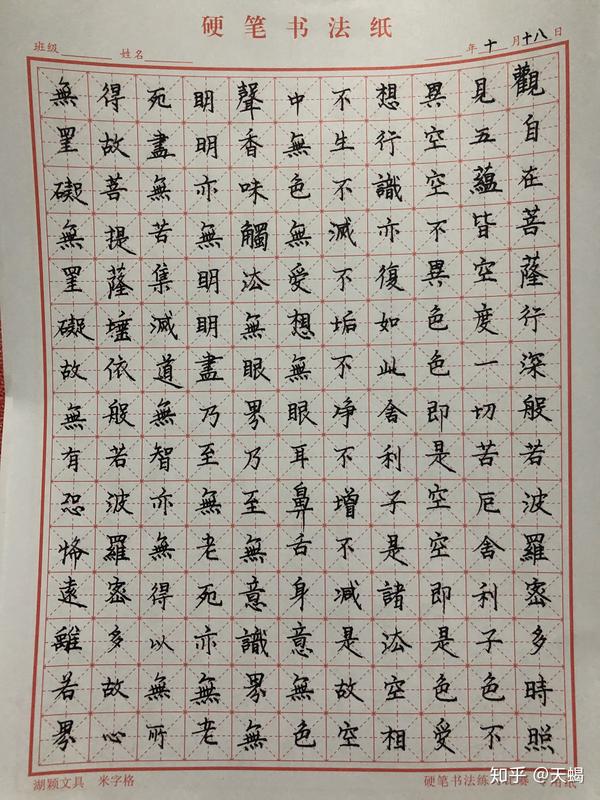 硬笔书法纸
班级 姓名 年十月十八日
觀自在菩薩行深般若波羅密多時照
見五蘊皆空度一切苦厄舍利子色不
異空空不異色色即是空空即是色受
想行識亦復如此舍利子是諸法空相
不生不滅不垢不净不增不减是故空
中無色無受想無眼耳鼻舌身意無色
聲香味觸法無眼界乃至無意識界無
明明亦無明明盡乃至無老死亦無老
死盡無苦集滅道無智亦無得以無所
得故菩提薩埵依般若波羅密多故心
無罣礙無罣礙故無有恐怖遠離若界
湖颖文具 米字格
硬笔书法练 赛 用纸
知乎 @天蝎